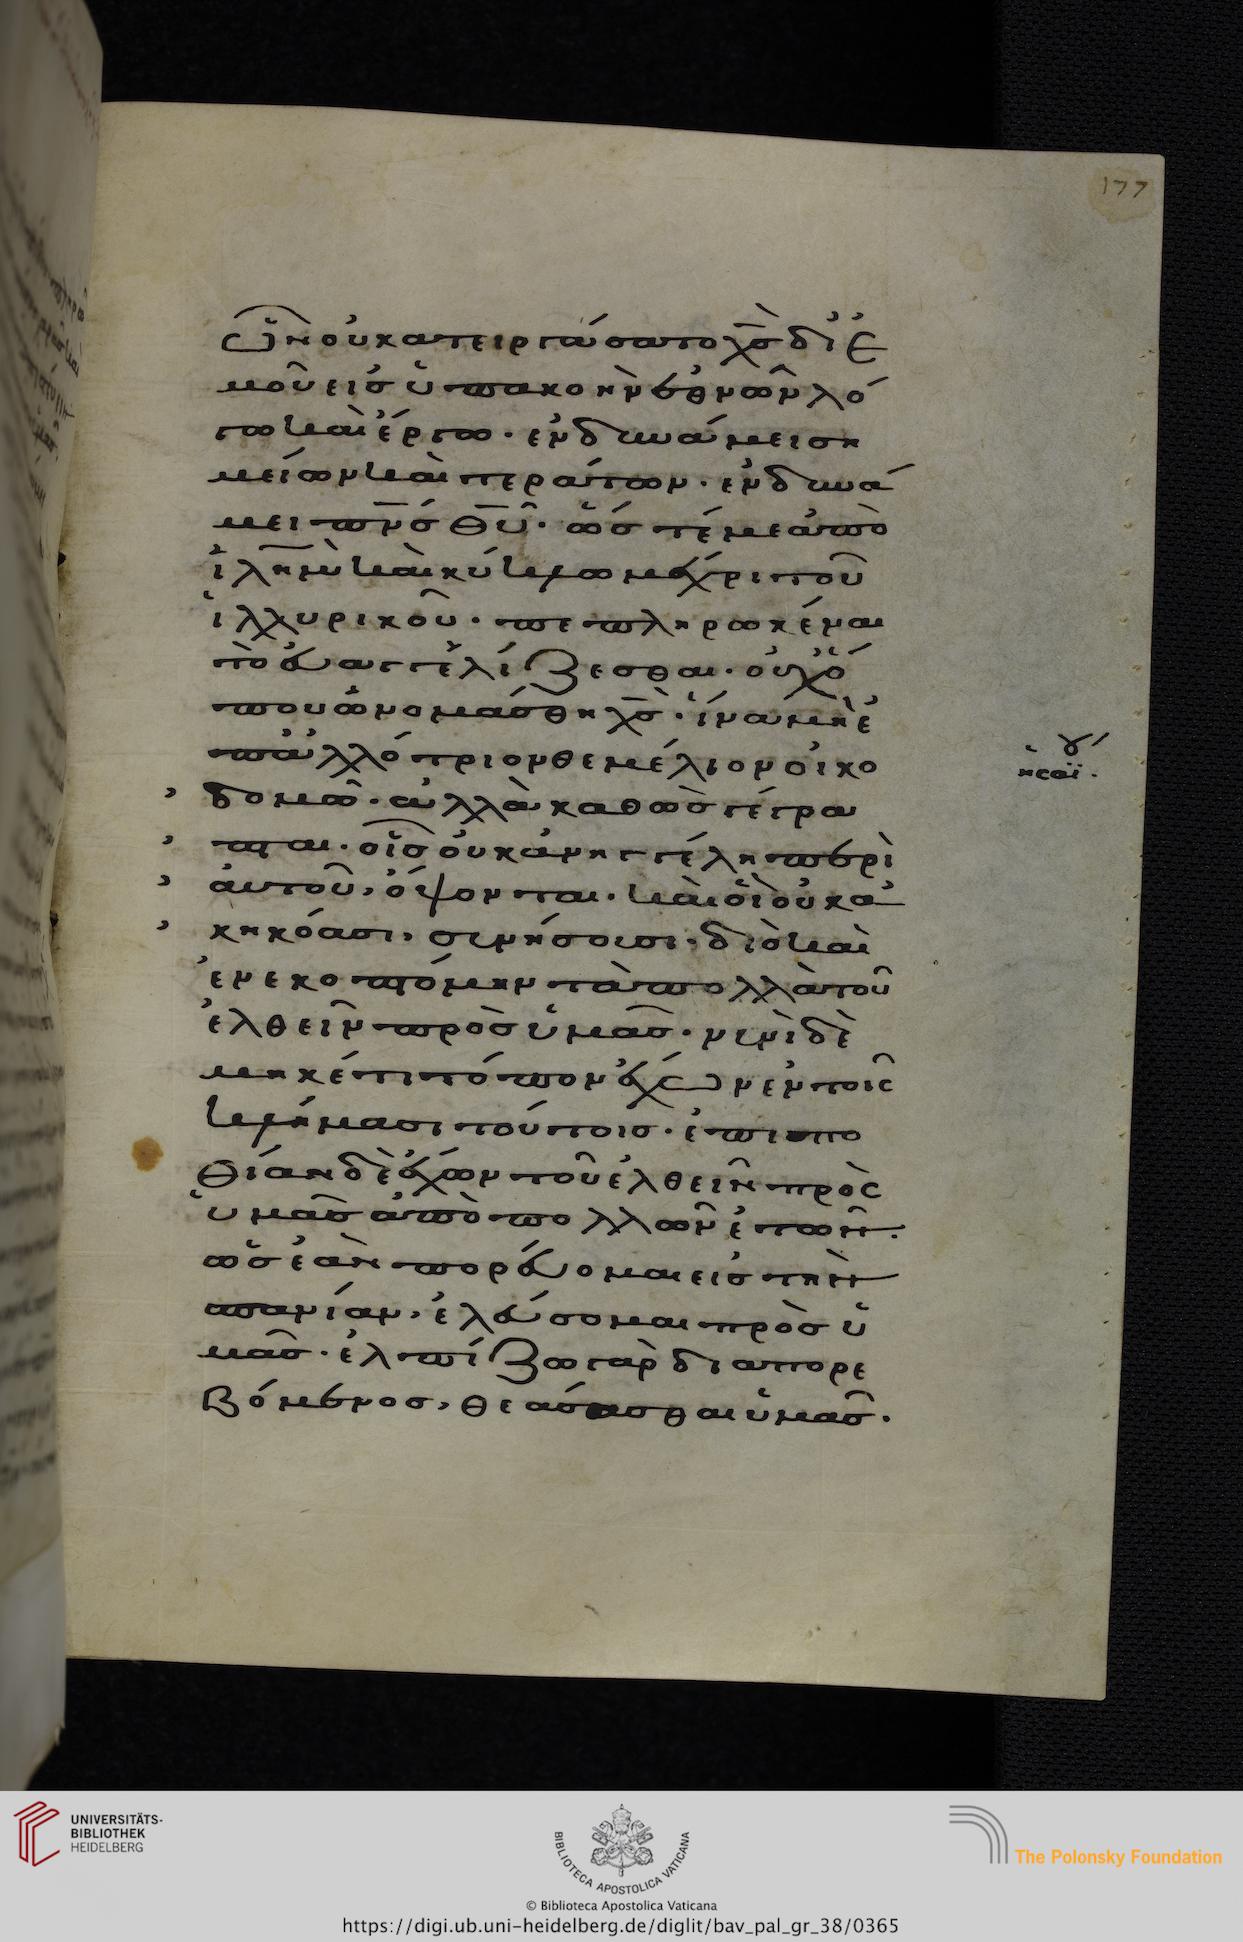 177
ὧν οὐ κατειργάσατο χ̅ς̅ δι' ἐ
μοῦ εἰς ὑπακοὴν ἐθνῶν λό
γω καὶ ἔργω· ἐν δυνάμει ση
μείων καὶ τεράτων· ἐν δυνά
μει π̅ν̅ς̅ θ̅υ̅· ὥς τέ με ἀπὸ
ἰ̅λ̅η̅μ̅ καὶ κύκλω μέχρι τοῦ
ἰλλυρικοῦ· πεπληρωκέναι
τὸ εὐαγγελίζεσθαι· οὐχ ὅ
που ὠνομάσθη χ̅ς̅· ἵνα μὴ ἐ
π' ἀλλότριον θεμέλιον οἰκο
δομῶ· ἀλλὰ καθὼς γέγρα
πται· οἷς οὐκ ἀνηγγέλη περὶ
αὐτοῦ, ὄψονται· καὶ οἳ οὐκ ἀ
κηκόασι, συνήσουσι· διὸ καὶ
ἐνεκοπτόμην τὰ πολλὰ τοῦ
ἐλθεῖν πρὸς ὑμᾶς· νυνὶ δὲ
μηκέτι τόπον ἔχων ἐν τοῖς
κλήμασι τούτοις· ἐπιπο
θίαν δὲ ἔχων τοῦ ἐλθεῖν πρὸς
ὑμᾶς ἀπὸ πολλῶν ἐτῶν·
ὡς ἐὰν πορεύομαι εἰς τὴν
σπανίαν, ἐλεύσομαι πρὸς ὑ
μᾶς· ἐλπίζω γὰρ διαπορε
υόμενος, θεάσασθαι ὑμᾶς·
γ'
ἠσαϊ·
UNIVERSITÄTS-
BIBLIOTHEK
HEIDELBERG
BIBLIOTECA APOSTOLICA VATICANA
The Polonsky Foundation
© Biblioteca Apostolica Vaticana
https://digi.ub.uni-heidelberg.de/diglit/bav_pal_gr_38/0365